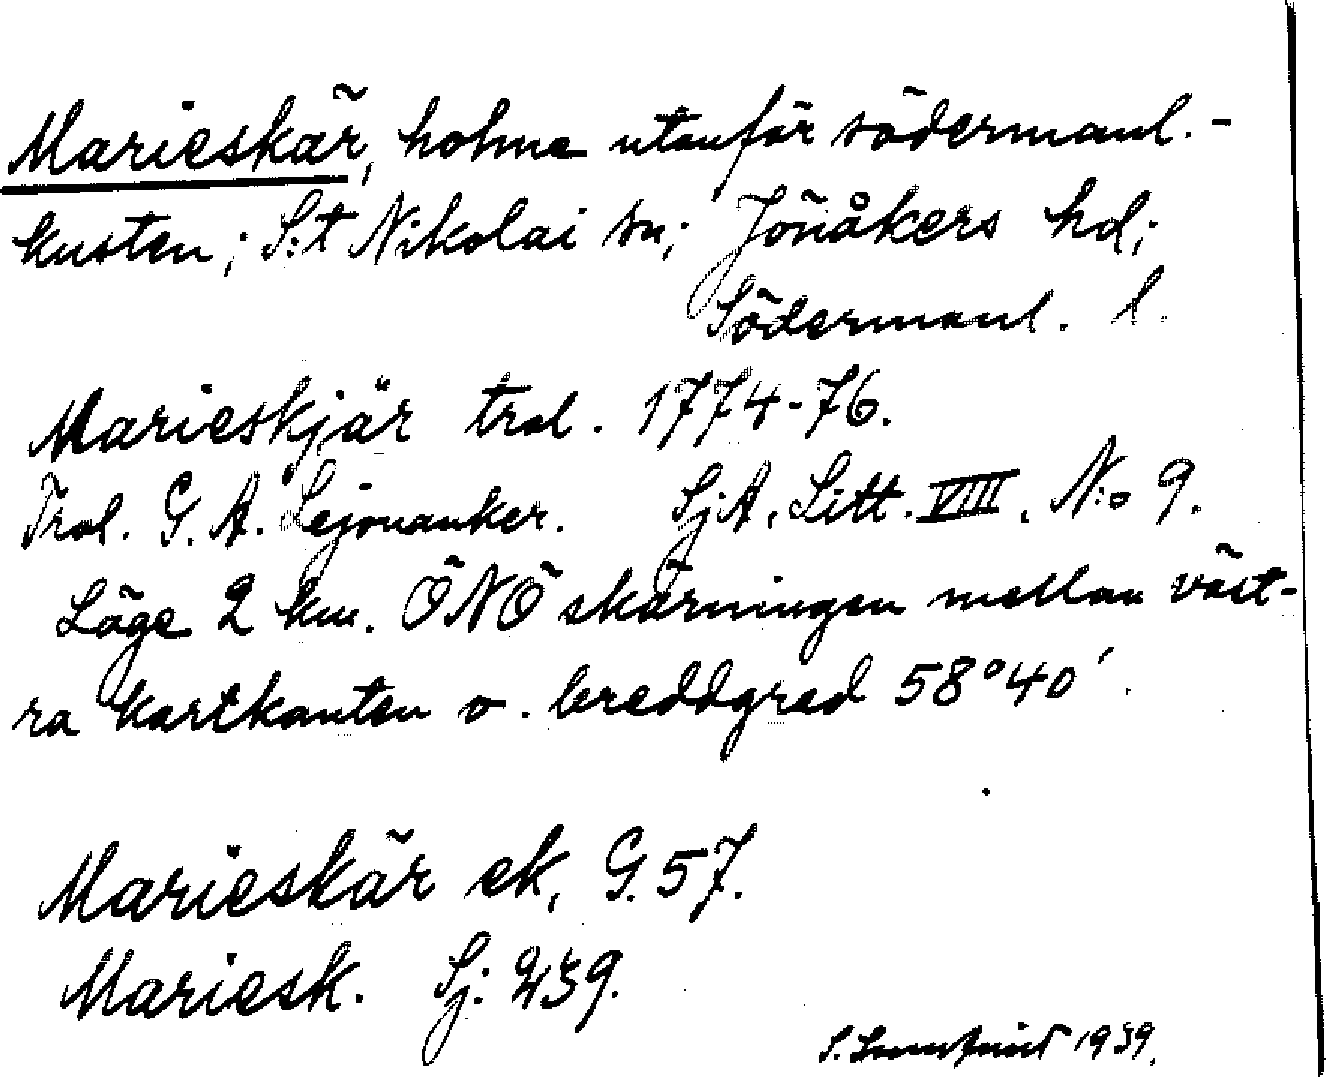 Marieskär, holme utanför södermanl.-
kusten; S:t Nikolai sn; Jönåkers hd;
Södermanl. l.
Marieskjär trol. 1774-76.
Trol. G. A. Lejonanker. SjA, Litt. VIII, N:o 9.
Läge 2 km. ÖNÖ skärningen mellan väst-
ra kartkanten o. breddgrad 58°40'.
Marieskär ek, G. 57.
Mariesk. Sj: 239.
S. 1939.